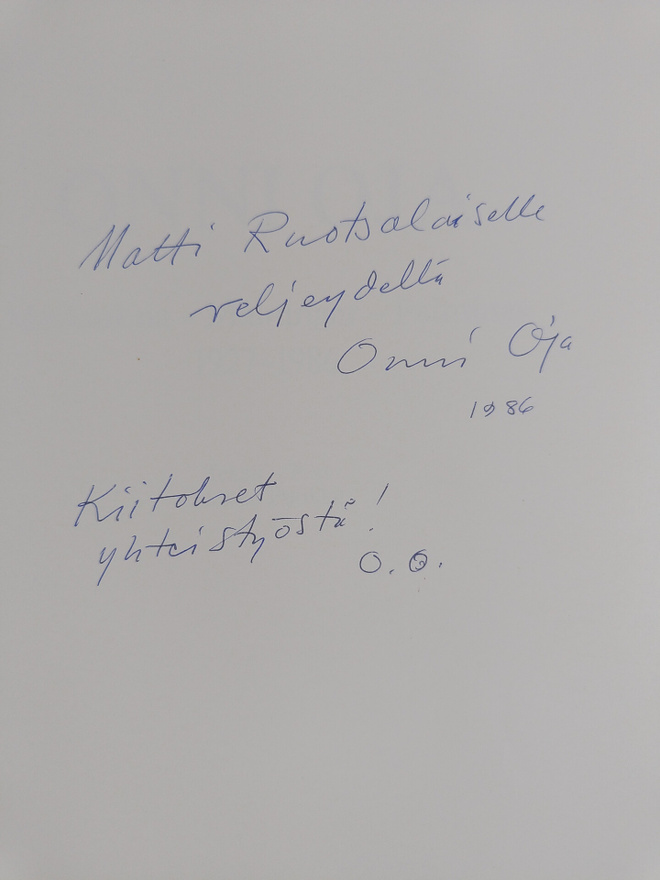 Matti Ruotsalaiselle
veljeydellä
Onni Oja
1986
Kiitokset
yhteistyöstä!
O.O.